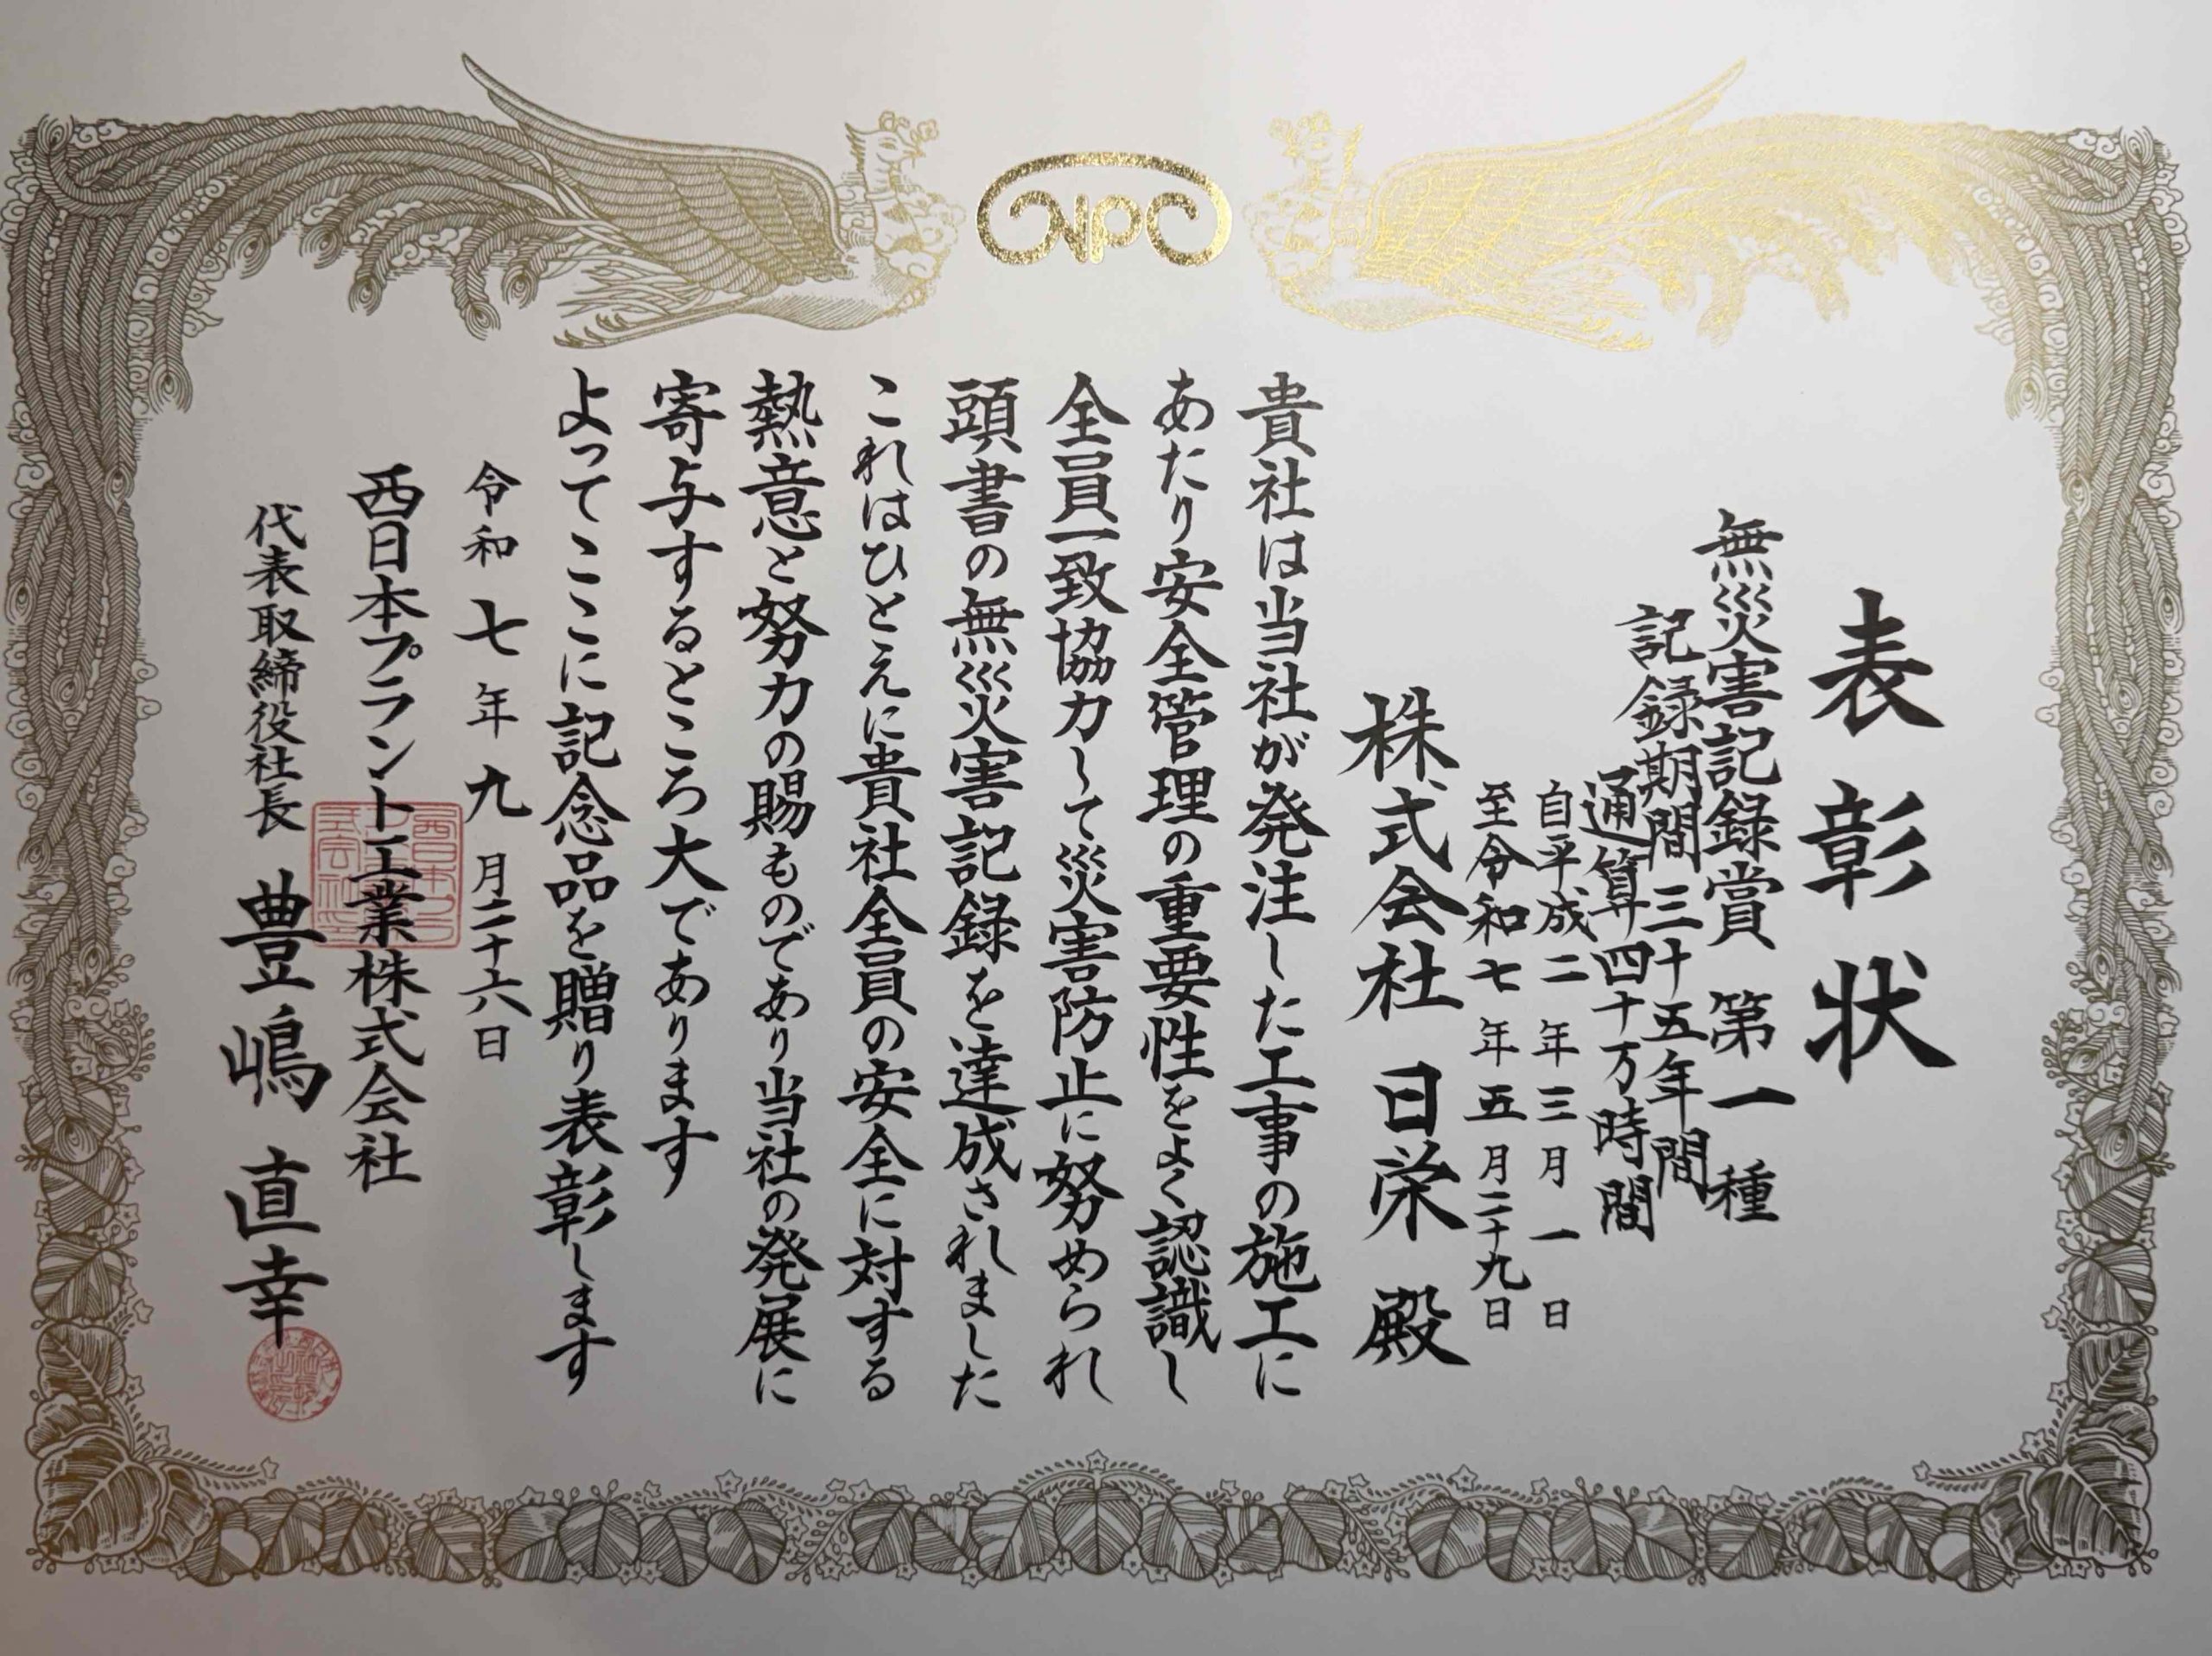 NPC
表彰状
無災害記録賞 第一種
記録期間 三十五年間
通算四十万時間
自平成二年三月一日
至令和七年五月二十九日
株式会社 日栄 殿
貴社は当社が発注した工事の施工に
あたり安全管理の重要性をよく認識し
全員一致協力して災害防止に努められ
頭書の無災害記録を達成されました
これはひとえに貴社全員の安全に対する
熱意と努力の賜ものであり当社の発展に
寄与するところ大であります
よってここに記念品を贈り表彰します
令和七年九月二十六日
西日本プラント工業株式会社
代表取締役社長 豊嶋 直幸